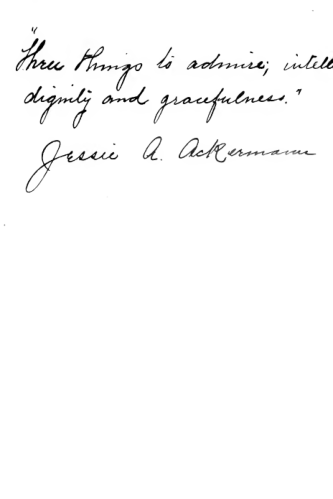 "Three things to admire; intell
dignity and gracefulness."
Jessie A. Ackermann